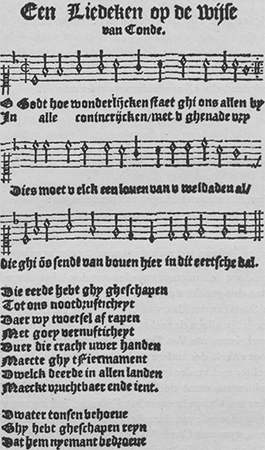 Een Liedeken op de wijse
van Conde.
O Godt hoe wonderlijcken staet ghi ons allen by
In alle conincrijcken/met v ghenade vry
Dies moet v elck een louen van v weldaden al/
Die ghi ōs sendt van bouen hier in dit eertsche dal.
Die eerde hebt ghy gheschapen
Tot ons nootdruftichеyt
Daer wy tvoetsel af rapen
Met goey vernufticheyt
Duer die cracht uwer handen
Maecte ghy tFiermament
Dwelck deerde in allen landen
Maeckt vruchtbaer ende ient.
Dwater tonsen behoeue
Ghy hebt gheschapen reyn
Dat hem nyemant bedroeue